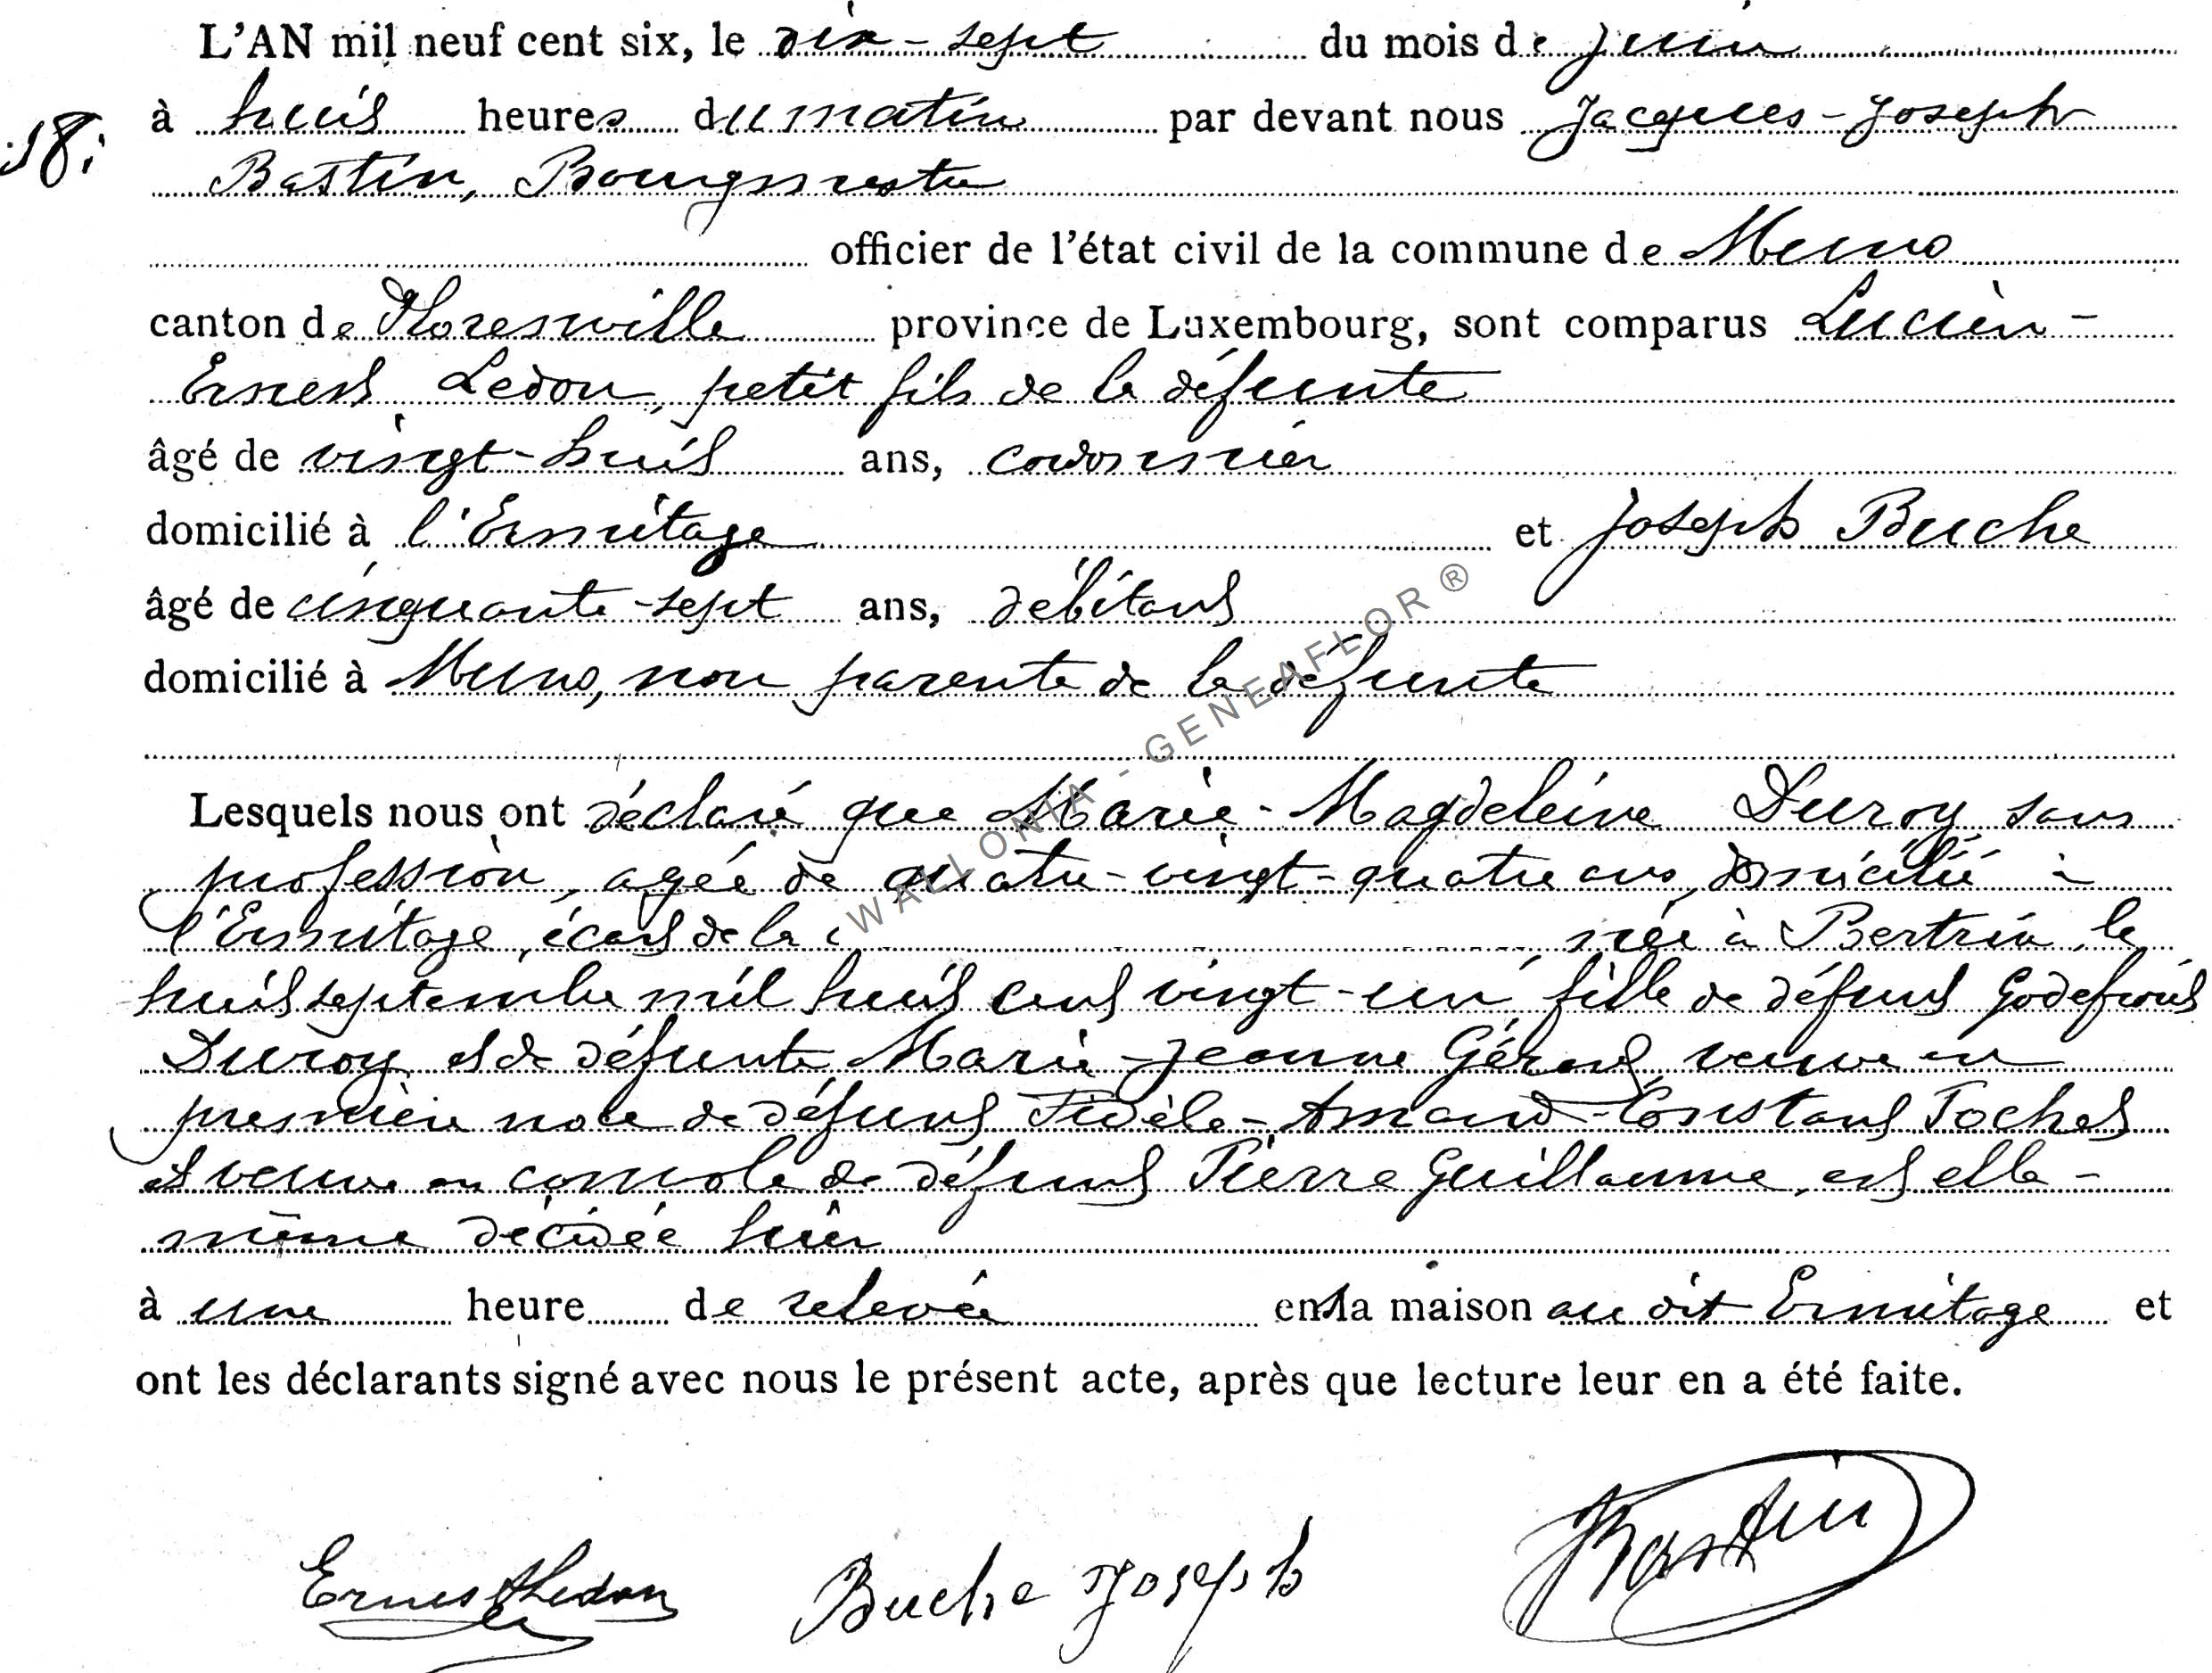 L'AN mil neuf cent six, le dix-sept du mois de juin
18. à huit heures du matin par devant nous Jacques-Joseph
Bastin, Bourgmestre
officier de l'état civil de la commune de Muno
canton de Florenville province de Luxembourg, sont comparus Lucien-
Ernest Ledon, petit fils de la défunte
âgé de vingt-huit ans, cordonnier
domicilié à l'Ermitage et Joseph Buche
âgé de cinquante-sept ans, débitant
domicilié à Muno, non parente de la défunte
WALLONIA - GENEAFLOR ®
Lesquels nous ont déclaré que Marie-Magdeleine Duroy, sans
profession, agée de quatre-vingt-quatre ans, domiciliée à
l'Ermitage, écart de la née à Bertrix, le
huit septembre mil huit cent vingt-un, fille de défunt Godefroid
Duroy et de défunte Marie-Jeanne Gérard, veuve en
première noce de défunt Fidèle-Amand-Constant Tochet
et veuve en convole de défunt Pierre Guillaume, est elle-
même décédée hier
à une heure de relevée en sa maison au dit Ermitage et
ont les déclarants signé avec nous le présent acte, après que lecture leur en a été faite.
Ernest Ledon Buche Joseph Bastin